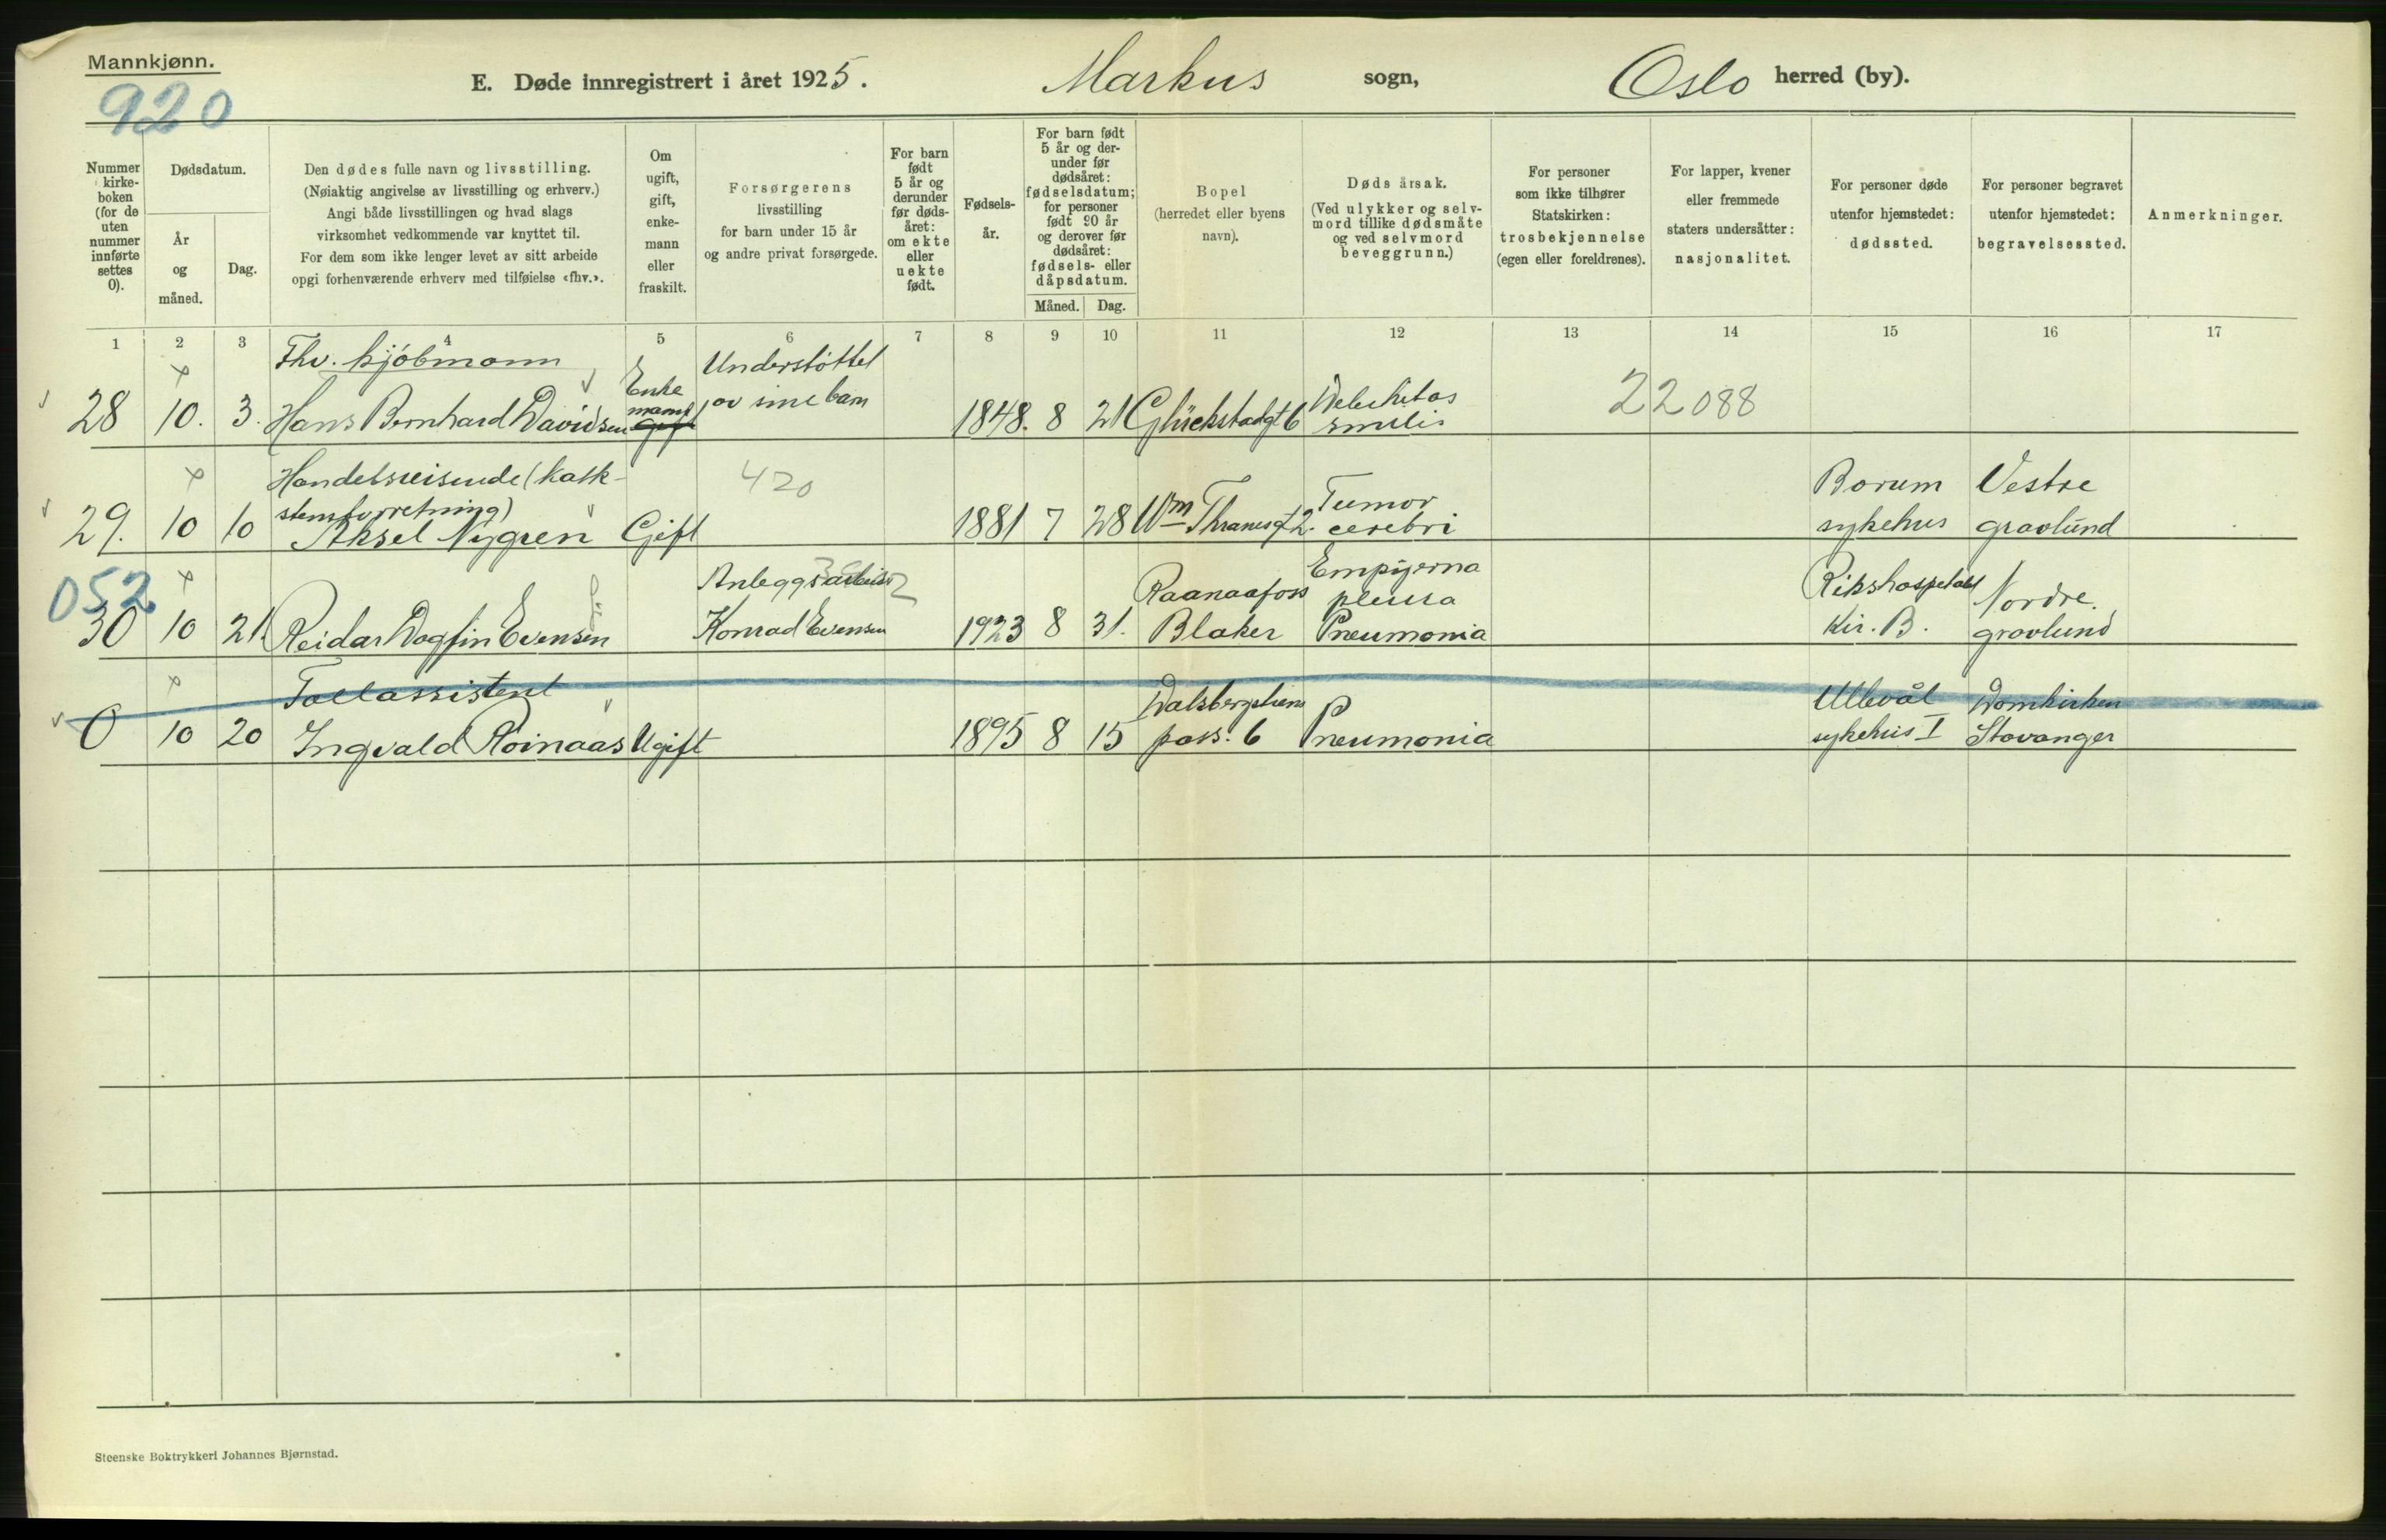 Mannkjønn.
920
E. Døde innregistrert i året 1925.
Markus sogn,
Oslo herred (by).
Nummer kirke-boken (for de uten nummer innførte settes 0).
Dødsdatum.
År og måned.
Dag.
Den dødes fulle navn og livsstilling.
(Nøiaktig angivelse av livsstilling og erhverv.)
Angi både livsstillingen og hvad slags
virksomhet vedkommende var knyttet til.
For dem som ikke lenger levet av sitt arbeide
opgi forhenværende erhverv med tilføielse «fhv.».
Om
ugift,
gift,
enke-
mann
eller
fraskilt.
Forsørgerens
livsstilling
for barn under 15 år
og andre privat forsørgede.
For barn
født
5 år og
derunder
før døds-
året:
om ekte
eller
uekte
født.
Fødsels-
år.
For barn født
5 år og der-
under før
dødsåret:
fødselsdatum;
for personer
født 90 år
og derover før
dødsåret:
fødsels- eller
dåpsdatum.
Måned.
Dag.
Bopel
(herredet eller byens
navn).
Dødsårsak.
(Ved ulykker og selv-
mord tillike dødsmåte
og ved selvmord
beveggrunn.)
For personer
som ikke tilhører
Statskirken:
trosbekjennelse
(egen eller foreldrenes).
For lapper, kvener
eller fremmede
staters undersåtter:
nasjonalitet.
For personer døde
utenfor hjemstedet:
dødssted.
For personer begravet
utenfor hjemstedet:
begravelsessted.
Anmerkninger.
1 2 3 4 5 6 7 8 9 10 11 12 13 14 15 16 17
Fhv. kjöbmann
Enke
mann
Understöttet
28 10. 3. Hans Bernhard Davidsen Gift av sine barn 1848. 8 21 Glückstadgt 6
smilis
22088
Handelsreisende (kalk-
stensforretning)
420
Tumor
Borum Vestre
29. 10 10 Aksel Nygren Gift 1881 7 28 Wm Thranesgt 2. cerebri sykehus gravlund
052
Anleggsarbeid
Raanaafoss
Empyema
pleura
Rikshospitalet
Nordre.
30 10 21. Reidar Dagfin Evensen Konrad Evensen 1923 8 31. Blaker Pneumonia Kir. B. gravlund
Tollassistent
Ullevål Domkirken
0 10 20 Ingvald Roinaas Ugift 1895 8 15 pass. 6 Pneumonia sykehus I Stavanger
Steenske Boktrykkeri Johannes Bjørnstad.